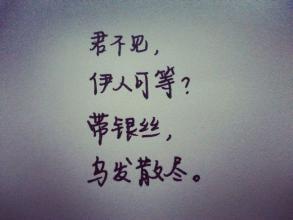 君不见，
伊人可等？
带银丝，
乌发散尽。